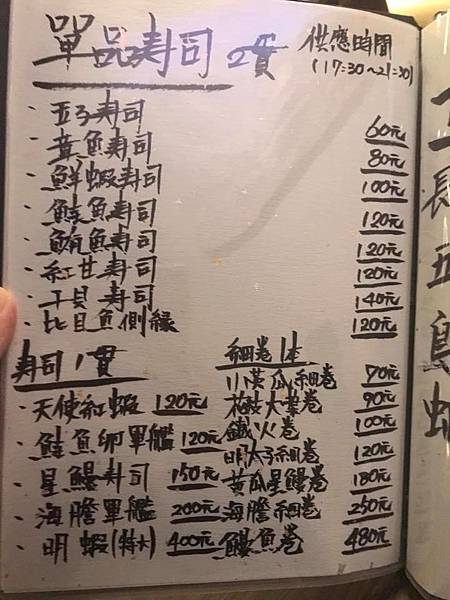 單品壽司 2貫 供應時間
(17:30~21:30)
· 玉子壽司 60元
· 黃魚壽司 80元
· 鮮蝦壽司 100元
· 鮭魚壽司 120元
· 鮪魚壽司 120元
· 紅甘壽司 120元
· 干貝壽司 140元
· 比目魚側緣 120元
壽司1貫
· 天使紅蝦 120元
· 鮭魚卵軍艦 120元
· 星鰻壽司 150元
· 海膽軍艦 200元
· 明蝦(特大) 400元
細卷1本
小黃瓜細卷 70元
花枝大葉卷 90元
鐵火卷 100元
明太子細卷 120元
黃瓜星鰻卷 180元
海膽細卷 250元
鰻魚卷 480元